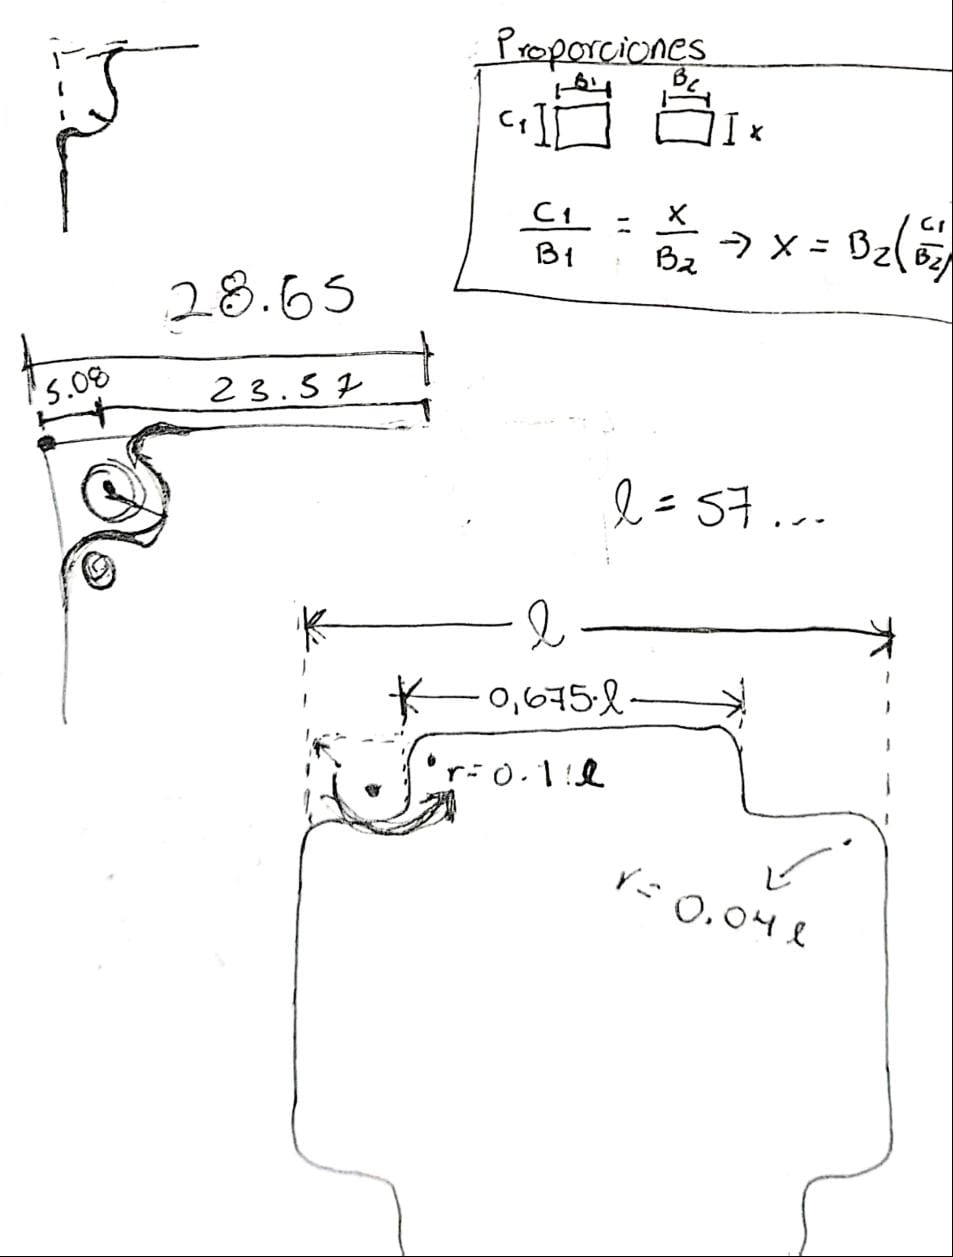 Proporciones
B1 B2
C1 x
C1/B1 = x/B2 → x = B2(C1/B2)
28.65
5.08 23.57
l = 57 ...
l
0,675·l
r=0.11l
r=0.04l